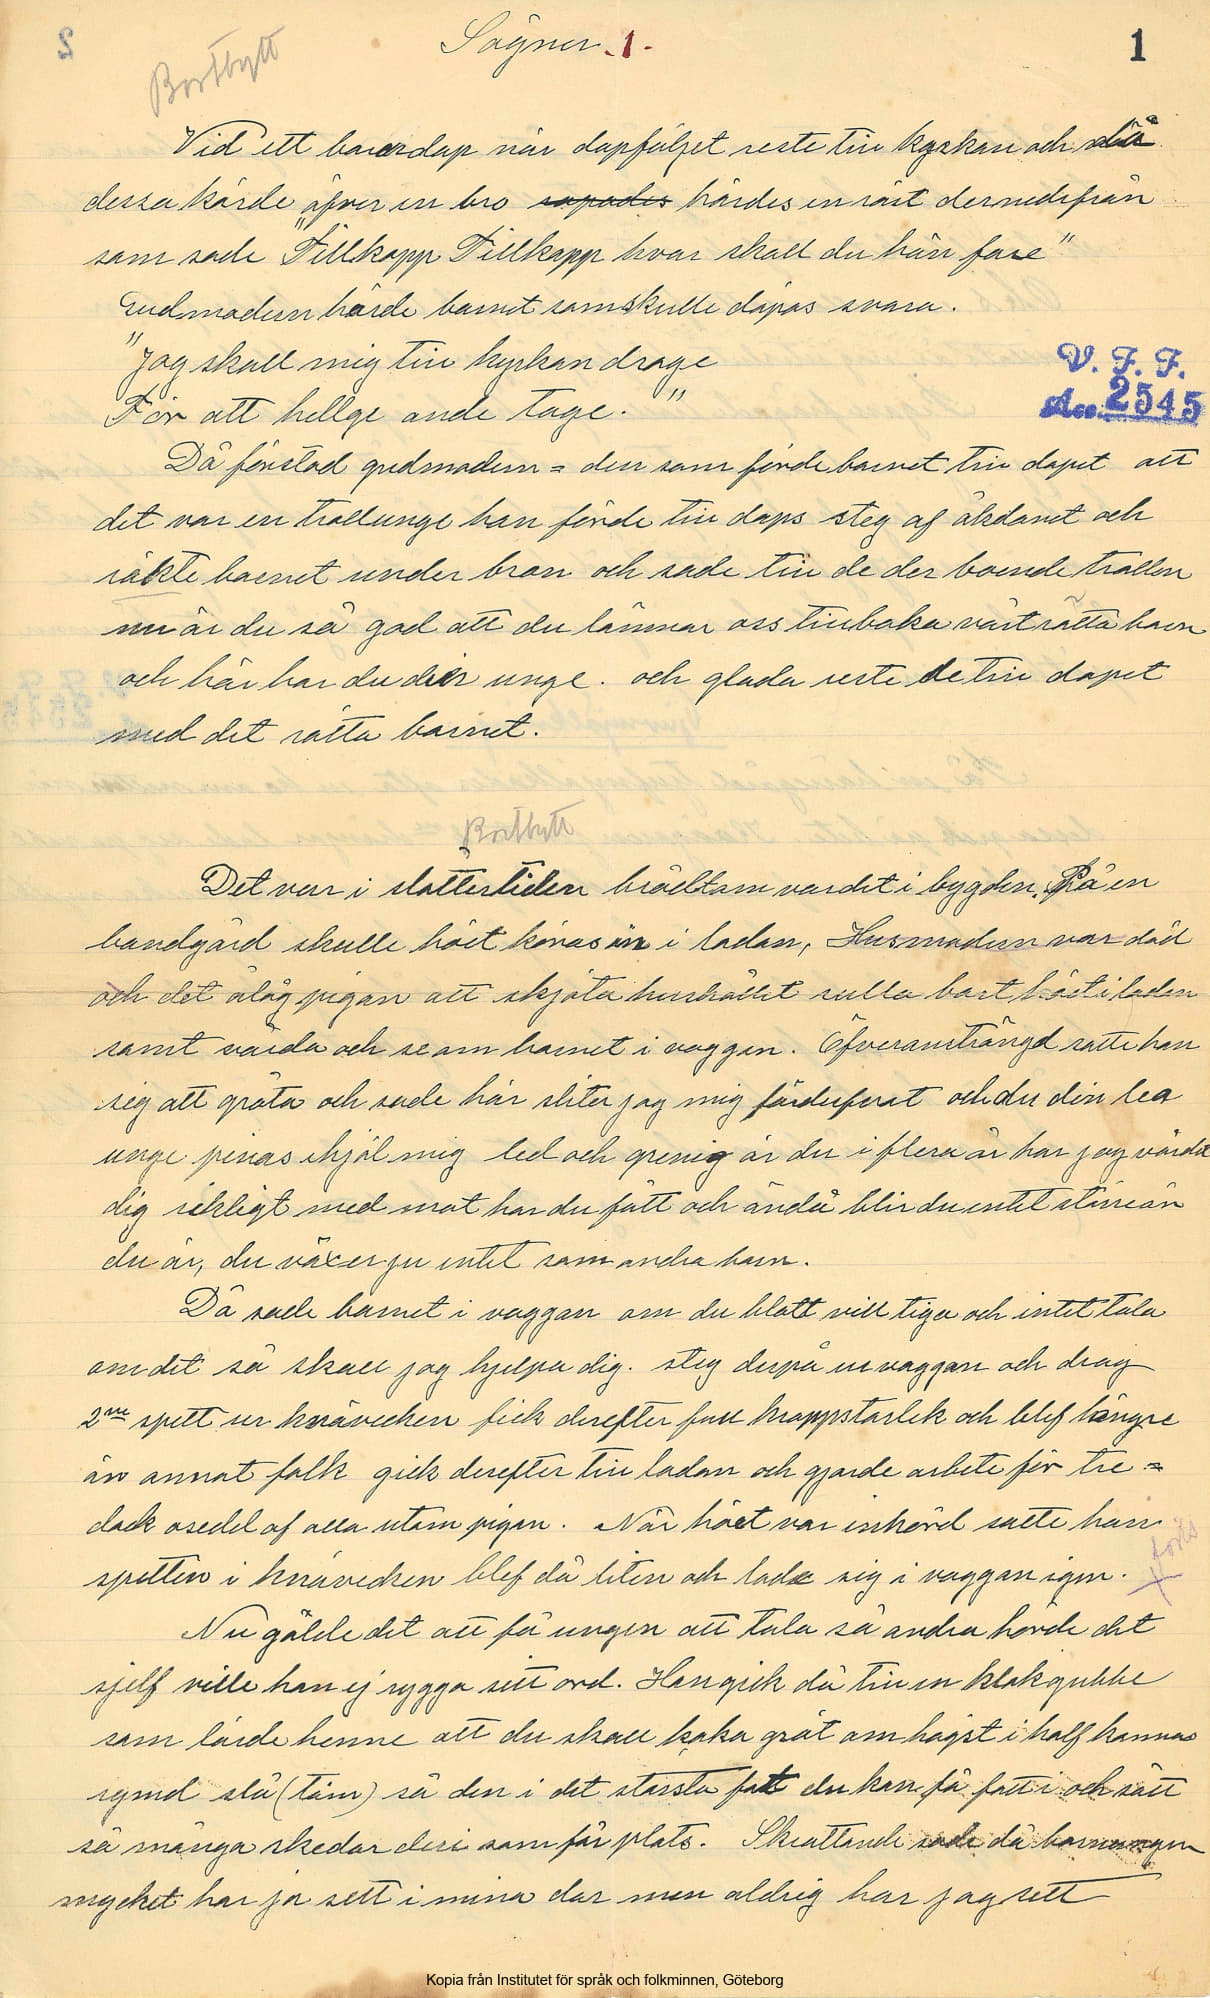 Sägner. 1.
1
Bortbytt
Vid ett barndop när dopföljet reste till kyrkan och då
dessa körde öfver en bro ropades hördes en röst dernedifrån
som sade "Tillkopp Tillkopp hvar skall du hän fare"
Gudmodern hörde barnet som skulle döpas svara.
"Jag skall mig till kyrkan drage
För att hellge ande tage."
V. F. F.
Acc. 2545
Då förstod gudmodern = den som förde barnet till dopet att
det var en trollunge hon förde till dops steg af åkdonet och
räkte barnet under bron och sade till de der boende trollen
nu är du så god att du lämnar oss tillbaka vårt rätta barn
och här har du din unge. och glada reste de till dopet
med det rätta barnet.
Bortbytt
Det var i slåttertiden brådtom var det i bygden. På en
bondgård skulle höet köras in i ladan, Husmodern var död
och det ålåg pigan att skjöta hushållet rulla bort höet i ladan
samt vårda och se om barnet i vaggan. Öfveransträngd satte hon
sig att gråta och sade här sliter jag mig förderfvat och du din lea
unge pinas ihjäl mig led och grenig är du i flera år har jag vårdat
dig rikligt med mat har du fått och ändå blir du intet större än
du är, du växer ju intet som andra barn.
Då sade barnet i vaggan om du blott vill tiga och intet tala
om det så skall jag hjelpa dig. steg derpå ur vaggan och drog
2ne spett ur knävecken fick derefter full kroppstorlek och blef längre
än annat folk gick derefter till ladan och gjorde arbete för tre =
dock osedd af alla utom pigan. När höet var inkörd satte han
spetten i knävecken blef då liten och lade sig i vaggan igen.
Nu gälde det att få ungen att tala så andra hörde det
sjelf ville hon ej rygga sitt ord. Hon gick då till en klok gubbe
som lärde henne att du skall koka gröt om högst i half kannas
rymd slå (töm) så den i det största fatt du kan få fatt i och sätt
så många skedar deri som får plats. Skrattande sade då barnungen
mycket har ja sett i mina dar men aldrig har jag sett
Kopia från Institutet för språk och folkminnen, Göteborg